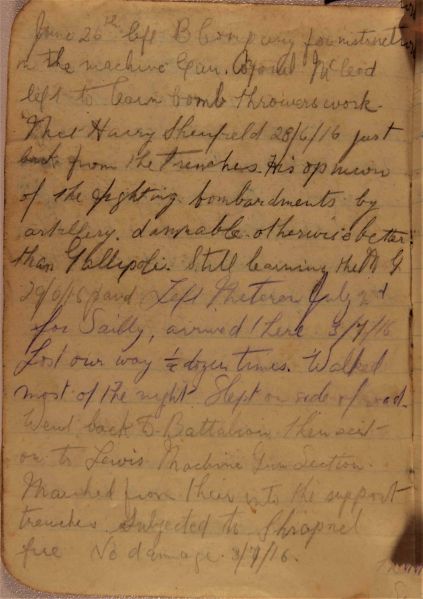 June 26th left B Company for instruction
in the machine Gun. Corporal McLeod
left to learn bomb throwers work.
Met Harry Shenfield 28/6/16 just
back from the trenches. His opinion
of the fighting bombardments by
artillery. damnable. otherwise better
than Gallipoli. Still learning the M G
29/6/16 paid. Left Meteren July 2nd
for Sailly, arrived there 3/7/16
Lost our way ½ dozen times. Walked
most of the night. Slept on side of road.
Went back to Battalion then sent
on to Lewis Machine Gun Section.
Marched from there into the support
trenches Subjected to Shrapnel
fire No damage. 3/7/16.